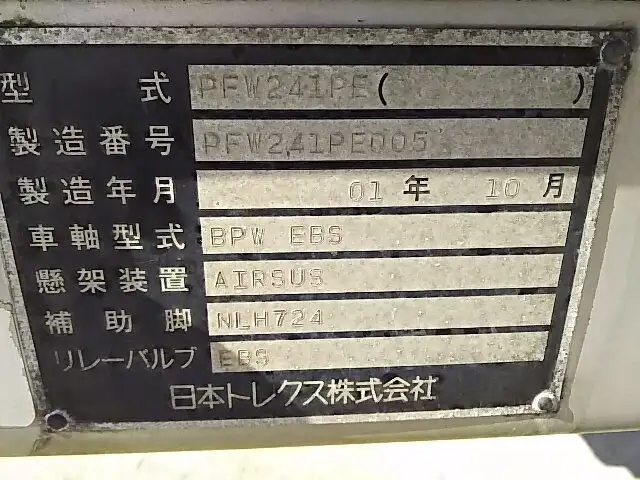 型 式 PFW241PE( )
製造番号 PFW241PE005
製造年月 01 年 10 月
車軸型式 BPW EBS
懸架装置 AIRSUS
補助脚 NLH724
リレーバルブ EBS
日本トレクス株式会社